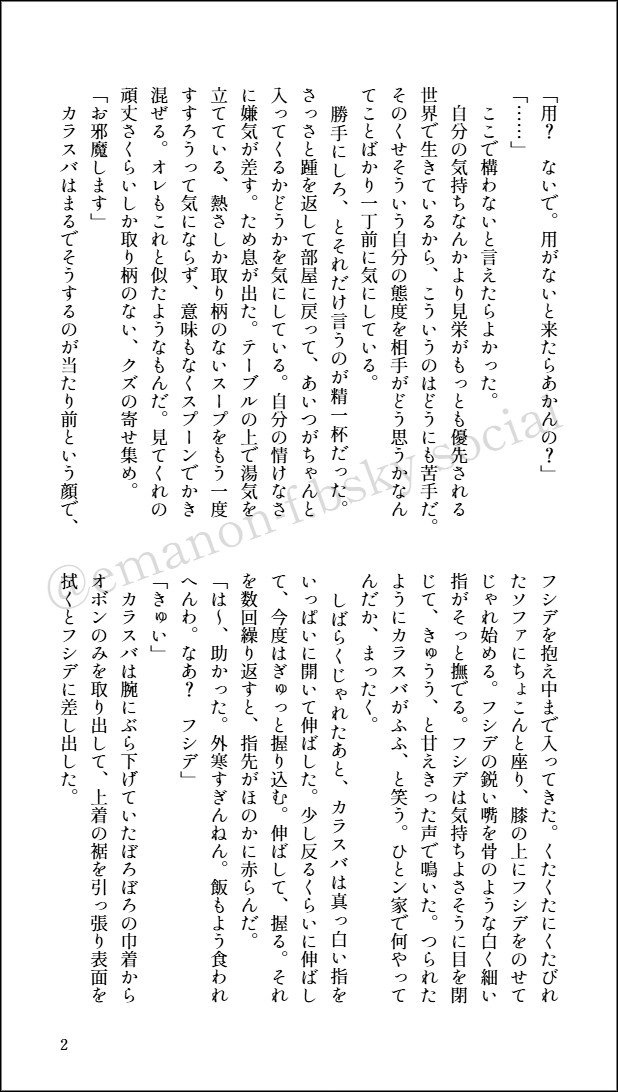 「用？　ないで。用がないと来たらあかんの？」
「……」
　ここで構わないと言えたらよかった。
　自分の気持ちなんかより見栄がもっとも優先される
世界で生きているから、こういうのはどうにも苦手だ。
そのくせそういう自分の態度を相手がどう思うかなん
てことばかり一丁前に気にしている。
　勝手にしろ、とそれだけ言うのが精一杯だった。
さっさと踵を返して部屋に戻って、あいつがちゃんと
入ってくるかどうかを気にしている。自分の情けなさ
に嫌気が差す。ため息が出た。テーブルの上で湯気を
立てている、熱さしか取り柄のないスープをもう一度
すすろうって気にならず、意味もなくスプーンでかき
混ぜる。オレもこれと似たようなもんだ。見てくれの
頑丈さくらいしか取り柄のない、クズの寄せ集め。
「お邪魔します」
　カラスバはまるでそうするのが当たり前という顔で、
フシデを抱え中まで入ってきた。くたくたにくたびれ
たソファにちょこんと座り、膝の上にフシデをのせて
じゃれ始める。フシデの鋭い嘴を骨のような白く細い
指がそっと撫でる。フシデは気持ちよさそうに目を閉
じて、きゅうう、と甘えきった声で鳴いた。つられた
ようにカラスバがふふ、と笑う。ひとン家で何やって
んだか、まったく。
　しばらくじゃれたあと、カラスバは真っ白い指を
いっぱいに開いて伸ばした。少し反るくらいに伸ばし
て、今度はぎゅっと握り込む。伸ばして、握る。それ
を数回繰り返すと、指先がほのかに赤らんだ。
「は〜、助かった。外寒すぎんねん。飯もよう食われ
へんわ。なあ？　フシデ」
「きゅい」
　カラスバは腕にぶら下げていたぼろぼろの巾着から
オボンのみを取り出して、上着の裾を引っ張り表面を
拭くとフシデに差し出した。
2
@emanon-f.bsky.social